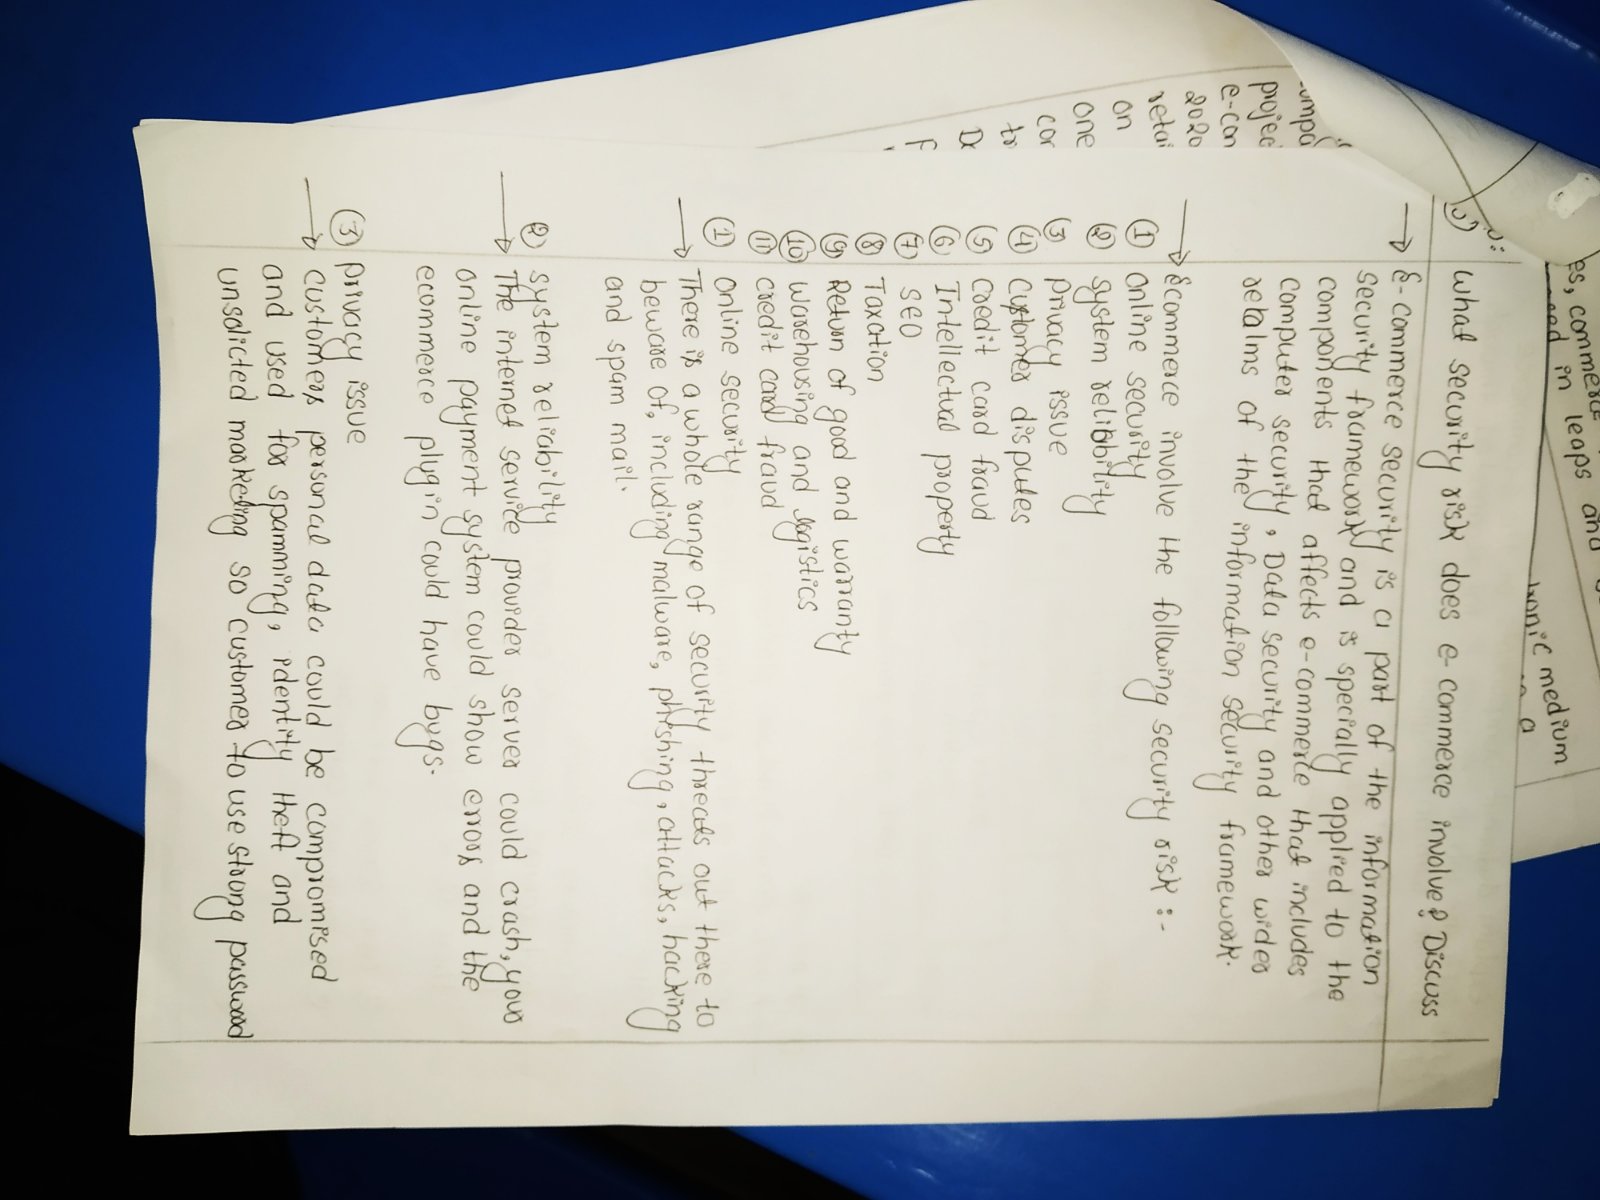 es, commerce
in leaps and
tronic medium
a
What security risk does e-commerce involve? Discuss
→ E-commerce security is a part of the information
security framework and is specially applied to the
components that affects e-commerce that includes
computer security, Data security and other wider
retalms of the information security framework.
→ Ecommerce involve the following security risk :-
① Online security
② system reliability
③ Privacy issue
④ Customer disputes
⑤ Credit card fraud
⑥ Intellectual property
⑦ SEO
⑧ Taxation
⑨ Return of good and warranty
⑩ warehousing and logistics
⑪ credit card fraud
① Online security
→ There is a whole range of security threats out there to
beware of, including malware, phishing, attacks, hacking
and spam mail.
② system reliability
→ The internet service provider server could crash, your
online payment system could show errors and the
ecommerce plugin could have bygs.
③ Privacy issue
→ customers personal data could be compromised
and used for spamming, identity theft and
unsolicted marketing so customer to use strong password
ompa
projec
e-con
2020
retai
on
one
cor
tr